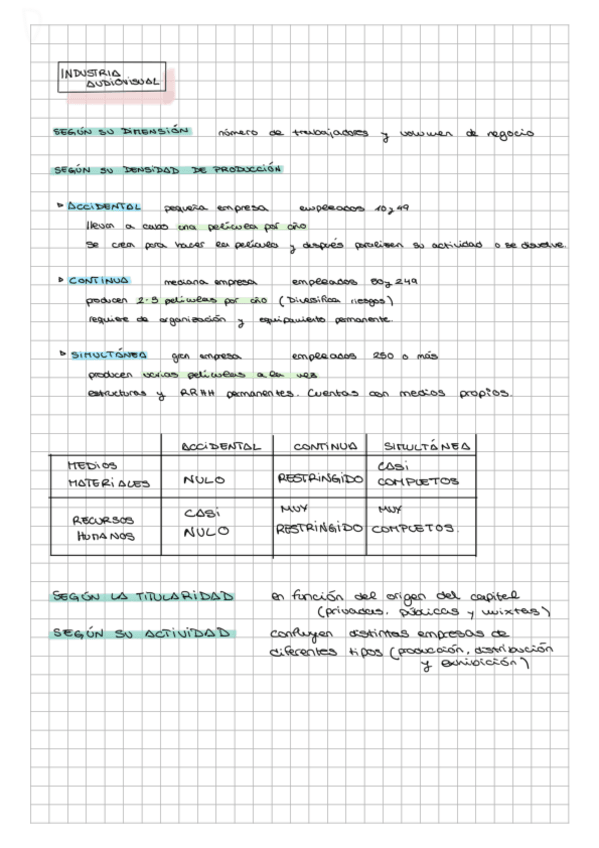 INDUSTRIA
AUDIOVISUAL
SEGÚN SU DIMENSIÓN número de trabajadores y volumen de negocio
SEGÚN SU DENSIDAD DE PRODUCCIÓN
▷ ACCIDENTAL pequeña empresa empleados 10 y 49
llevan a cabo una película por año
se crea para hacer la película y después paralizan su actividad o se disuelve.
▷ CONTINUA mediana empresa empleados 50 y 249
producen 2-5 películas por año (Diversifica riesgos)
requiere de organización y equipamiento permanente.
▷ SIMULTÁNEA gran empresa empleados 250 o más
producen varias películas a la vez
estructuras y RRHH permanentes. Cuentas con medios propios.
ACCIDENTAL CONTINUA SIMULTÁNEA
MEDIOS MATERIALES NULO RESTRINGIDO CASI COMPLETOS
RECURSOS HUMANOS CASI NULO MUY RESTRINGIDO MUY COMPLETOS.
SEGÚN LA TITULARIDAD en función del origen del capital
(privadas, públicas y mixtas)
SEGÚN SU ACTIVIDAD confluyen distintas empresas de
diferentes tipos (producción, distribución
y exhibición)